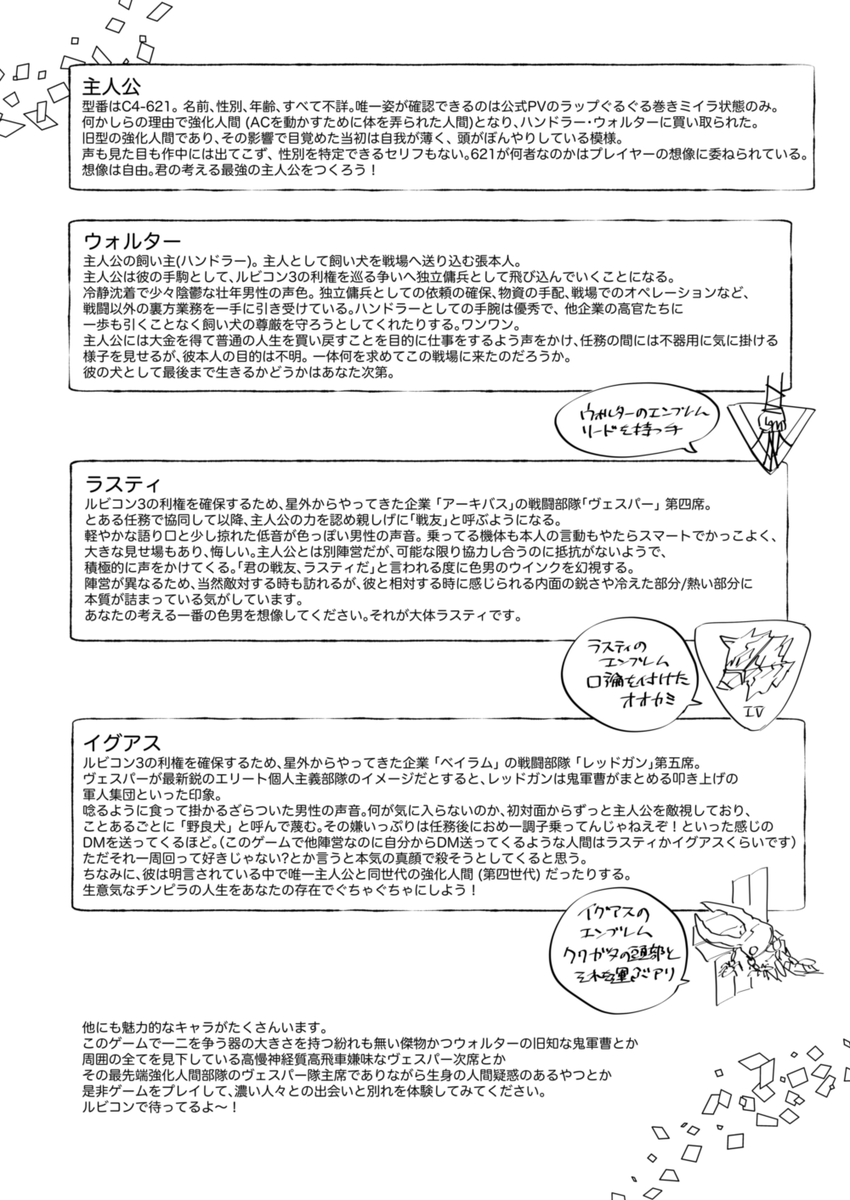 主人公
型番はC4-621。名前、性別、年齢、すべて不詳。唯一姿が確認できるのは公式PVのラップぐるぐる巻きミイラ状態のみ。
何かしらの理由で強化人間 (ACを動かすために体を弄られた人間)となり、ハンドラー・ウォルターに買い取られた。
旧型の強化人間であり、その影響で目覚めた当初は自我が薄く、頭がぼんやりしている模様。
声も見た目も作中には出てこず、性別を特定できるセリフもない。621が何者なのかはプレイヤーの想像に委ねられている。
想像は自由。君の考える最強の主人公をつくろう!
ウォルター
主人公の飼い主(ハンドラー)。主人として飼い犬を戦場へ送り込む張本人。
主人公は彼の手駒として、ルビコン3の利権を巡る争いへ独立傭兵として飛び込んでいくことになる。
冷静沈着で少々陰鬱な壮年男性の声色。独立傭兵としての依頼の確保、物資の手配、戦場でのオペレーションなど、
戦闘以外の裏方業務を一手に引き受けている。ハンドラーとしての手腕は優秀で、他企業の高官たちに
一歩も引くことなく飼い犬の尊厳を守ろうとしてくれたりする。ワンワン。
主人公には大金を得て普通の人生を買い戻すことを目的に仕事をするよう声をかけ、任務の間には不器用に気に掛ける
様子を見せるが、彼本人の目的は不明。一体何を求めてこの戦場に来たのだろうか。
彼の犬として最後まで生きるかどうかはあなた次第。
ウォルターのエンブレム
リードを持つ手
ラスティ
ルビコン3の利権を確保するため、星外からやってきた企業「アーキバス」の戦闘部隊「ヴェスパー」第四席。
とある任務で協同して以降、主人公の力を認め親しげに「戦友」と呼ぶようになる。
軽やかな語り口と少し掠れた低音が色っぽい男性の声音。乗ってる機体も本人の言動もやたらスマートでかっこよく、
大きな見せ場もあり、悔しい。主人公とは別陣営だが、可能な限り協力し合うのに抵抗がないようで、
積極的に声をかけてくる。「君の戦友、ラスティだ」と言われる度に色男のウインクを幻視する。
陣営が異なるため、当然敵対する時も訪れるが、彼と相対する時に感じられる内面の鋭さや冷えた部分/熱い部分に
本質が詰まっている気がしています。
あなたの考える一番の色男を想像してください。それが大体ラスティです。
ラスティの
エンブレム
口輪を付けた
オオカミ
IV
イグアス
ルビコン3の利権を確保するため、星外からやってきた企業「ベイラム」の戦闘部隊「レッドガン」第五席。
ヴェスパーが最新鋭のエリート個人主義部隊のイメージだとすると、レッドガンは鬼軍曹がまとめる叩き上げの
軍人集団といった印象。
唸るように食って掛かるざらついた男性の声音。何が気に入らないのか、初対面からずっと主人公を敵視しており、
ことあるごとに「野良犬」と呼んで蔑む。その嫌いっぷりは任務後におめー調子乗ってんじゃねえぞ!といった感じの
DMを送ってくるほど。(このゲームで他陣営なのに自分からDM送ってくるような人間はラスティかイグアスくらいです)
ただそれ一周回って好きじゃない?とか言うと本気の真顔で殺そうとしてくると思う。
ちなみに、彼は明言されている中で唯一主人公と同世代の強化人間 (第四世代) だったりする。
生意気なチンピラの人生をあなたの存在でぐちゃぐちゃにしよう!
イグアスの
エンブレム
クワガタの頭部と
それを運ぶアリ
他にも魅力的なキャラがたくさんいます。
このゲームで一二を争う器の大きさを持つ紛れも無い傑物かつウォルターの旧知な鬼軍曹とか
周囲の全てを見下している高慢神経質高飛車嫌味なヴェスパー次席とか
その最先端強化人間部隊のヴェスパー隊主席でありながら生身の人間疑惑のあるやつとか
是非ゲームをプレイして、濃い人々との出会いと別れを体験してみてください。
ルビコンで待ってるよ~!